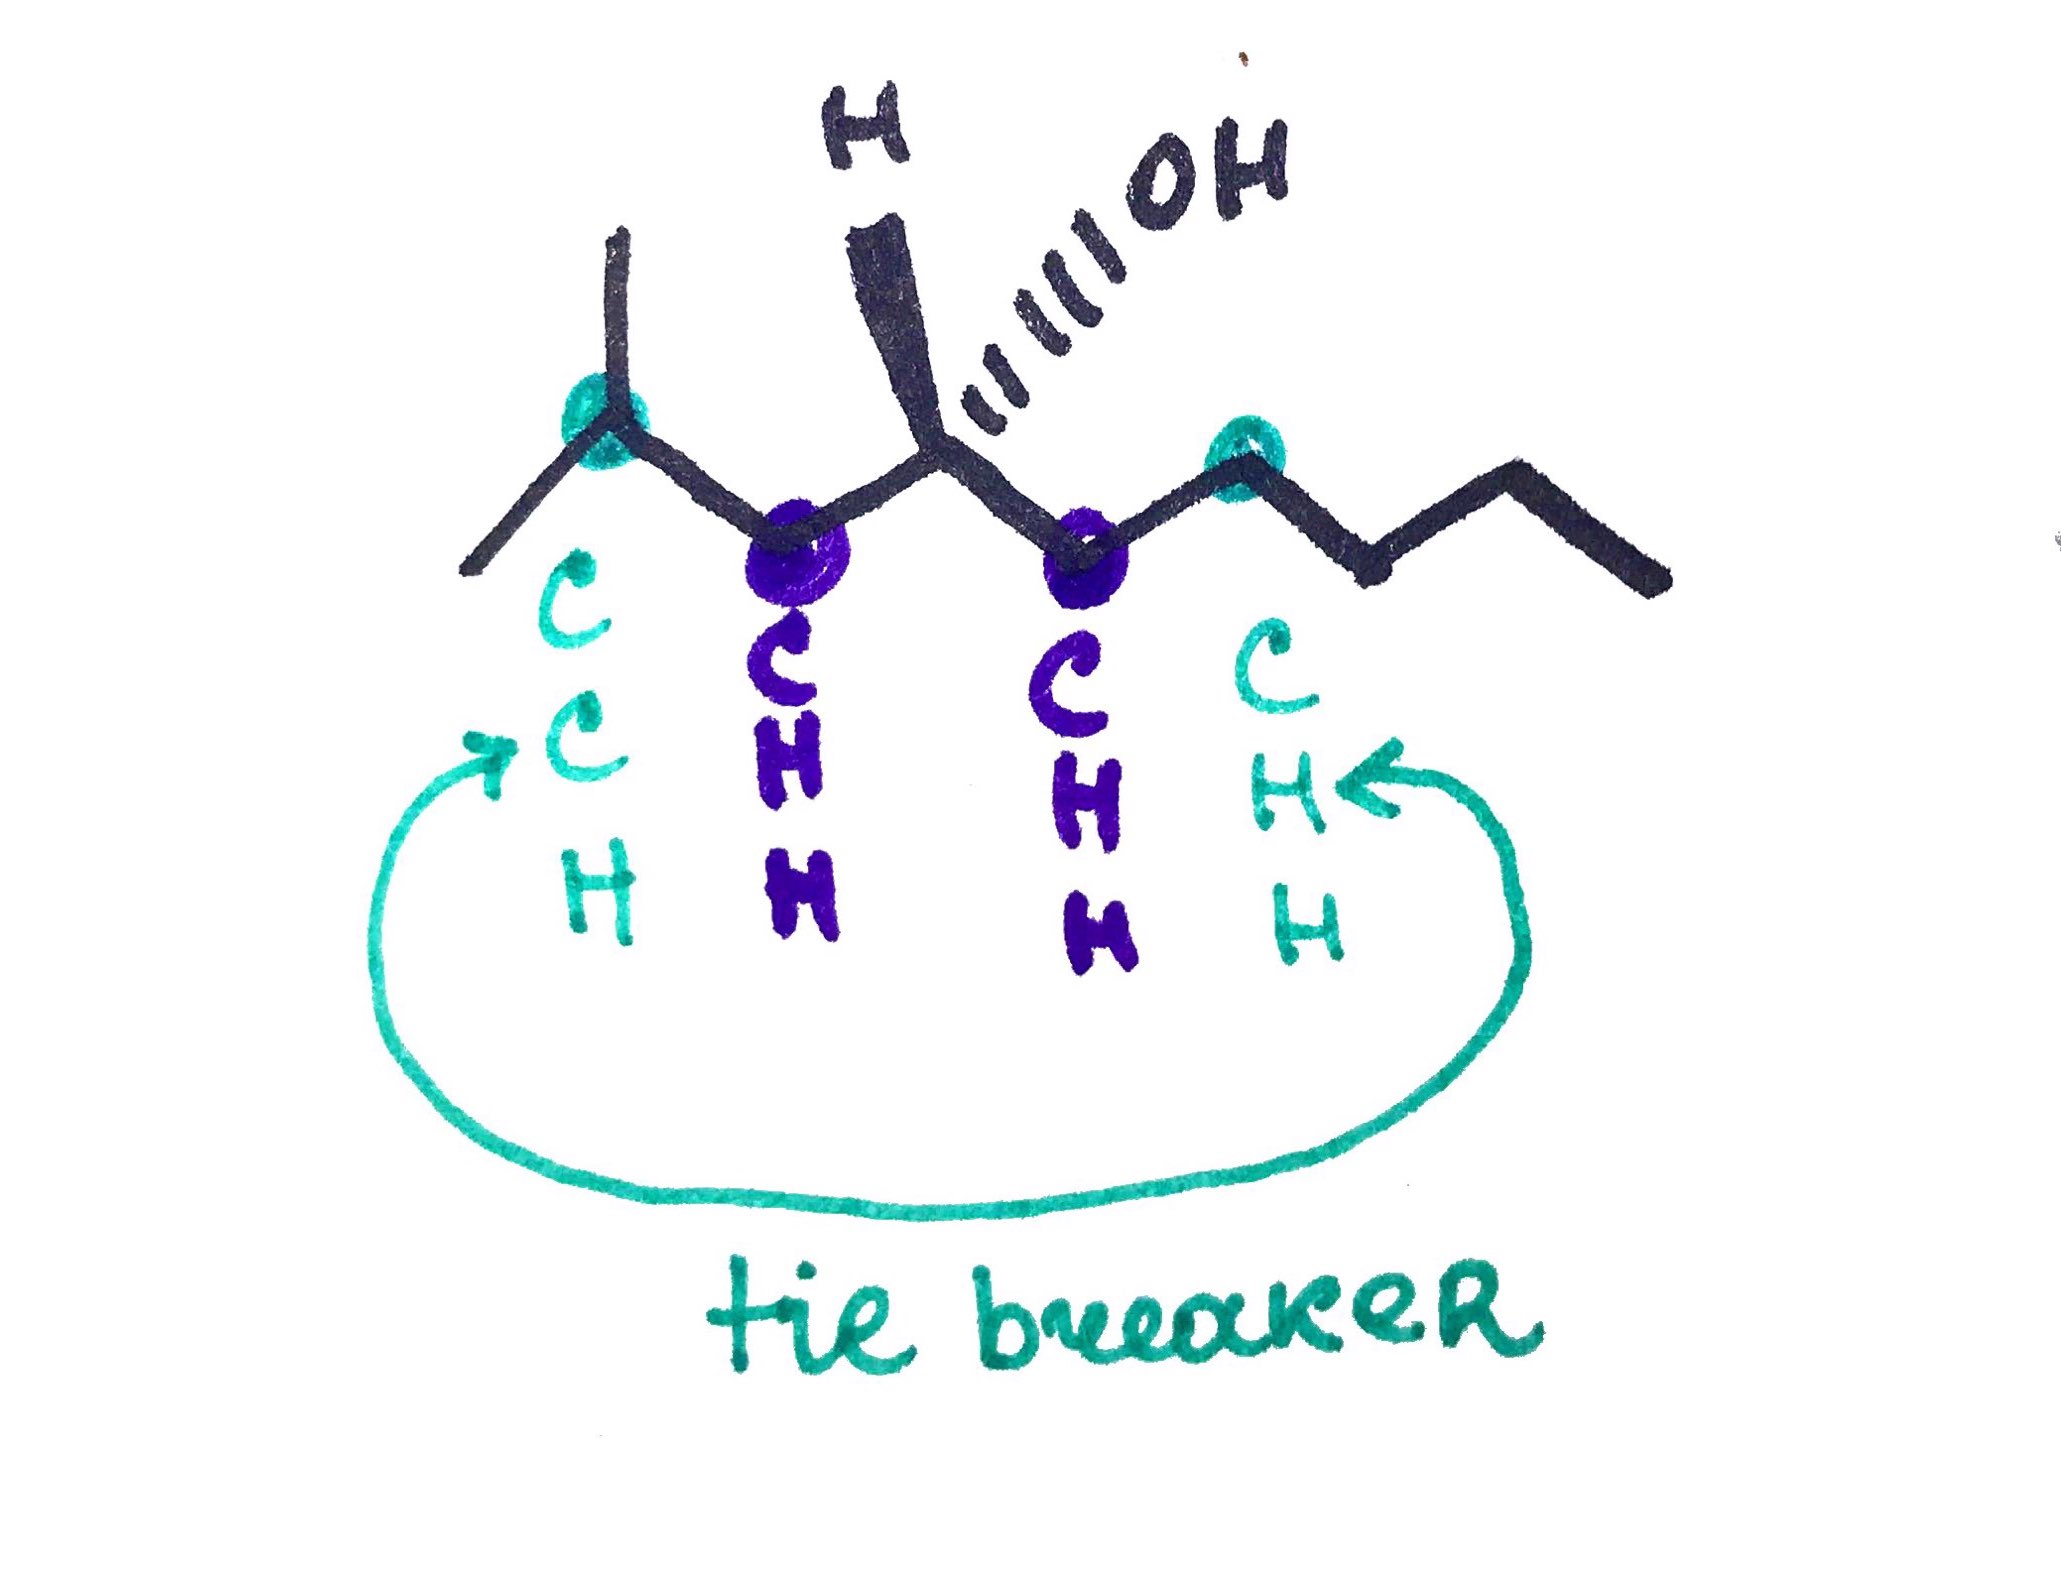 H
OH
C C C C
C H H H
H H H H
tie breaker